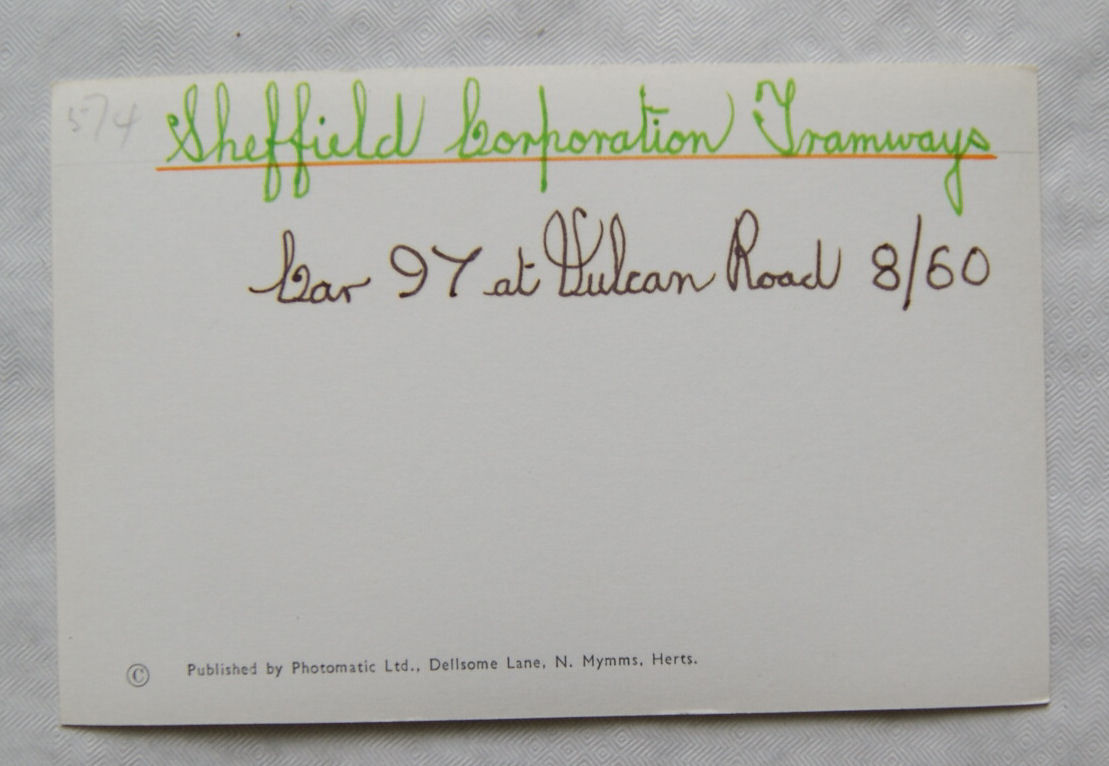 574
Sheffield Corporation Tramways
Car 97 at Vulcan Road 8/60
© Published by Photomatic Ltd., Dellsome Lane, N. Mymms, Herts.